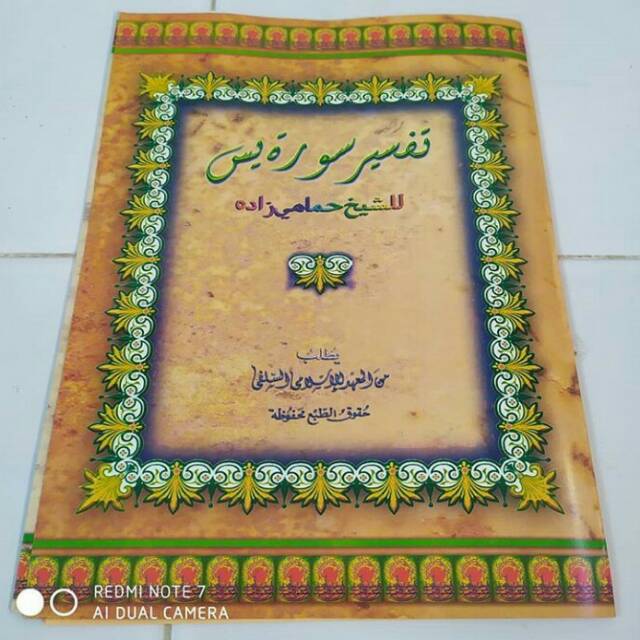 تفسير سورة يس
للشيخ حمامي زاده
يطلب
من المعهد الإسلامي السلفي
حقوق الطبع محفوظة
REDMI NOTE 7
AI DUAL CAMERA